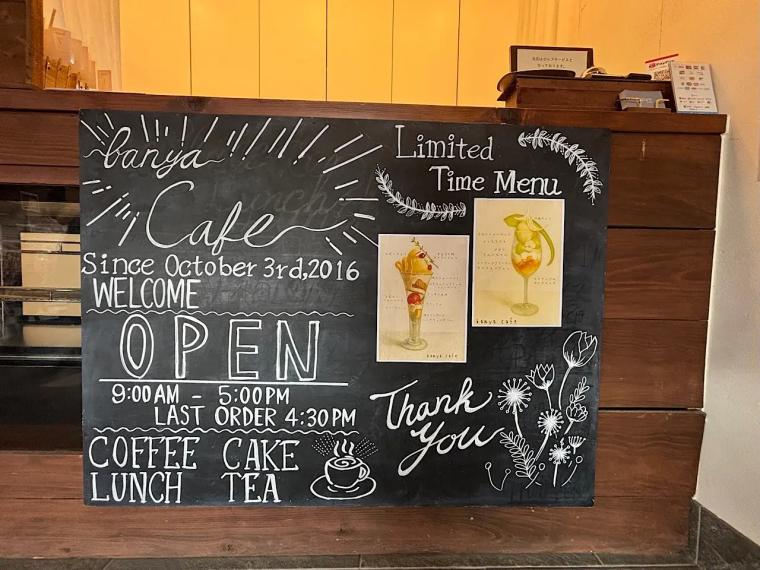 banya
Cafe
Since October 3rd,2016
WELCOME
OPEN
9:00AM - 5:00PM
LAST ORDER 4:30PM
COFFEE CAKE
LUNCH TEA
Limited
Time Menu
banya cafe
banya cafe
Thank
You